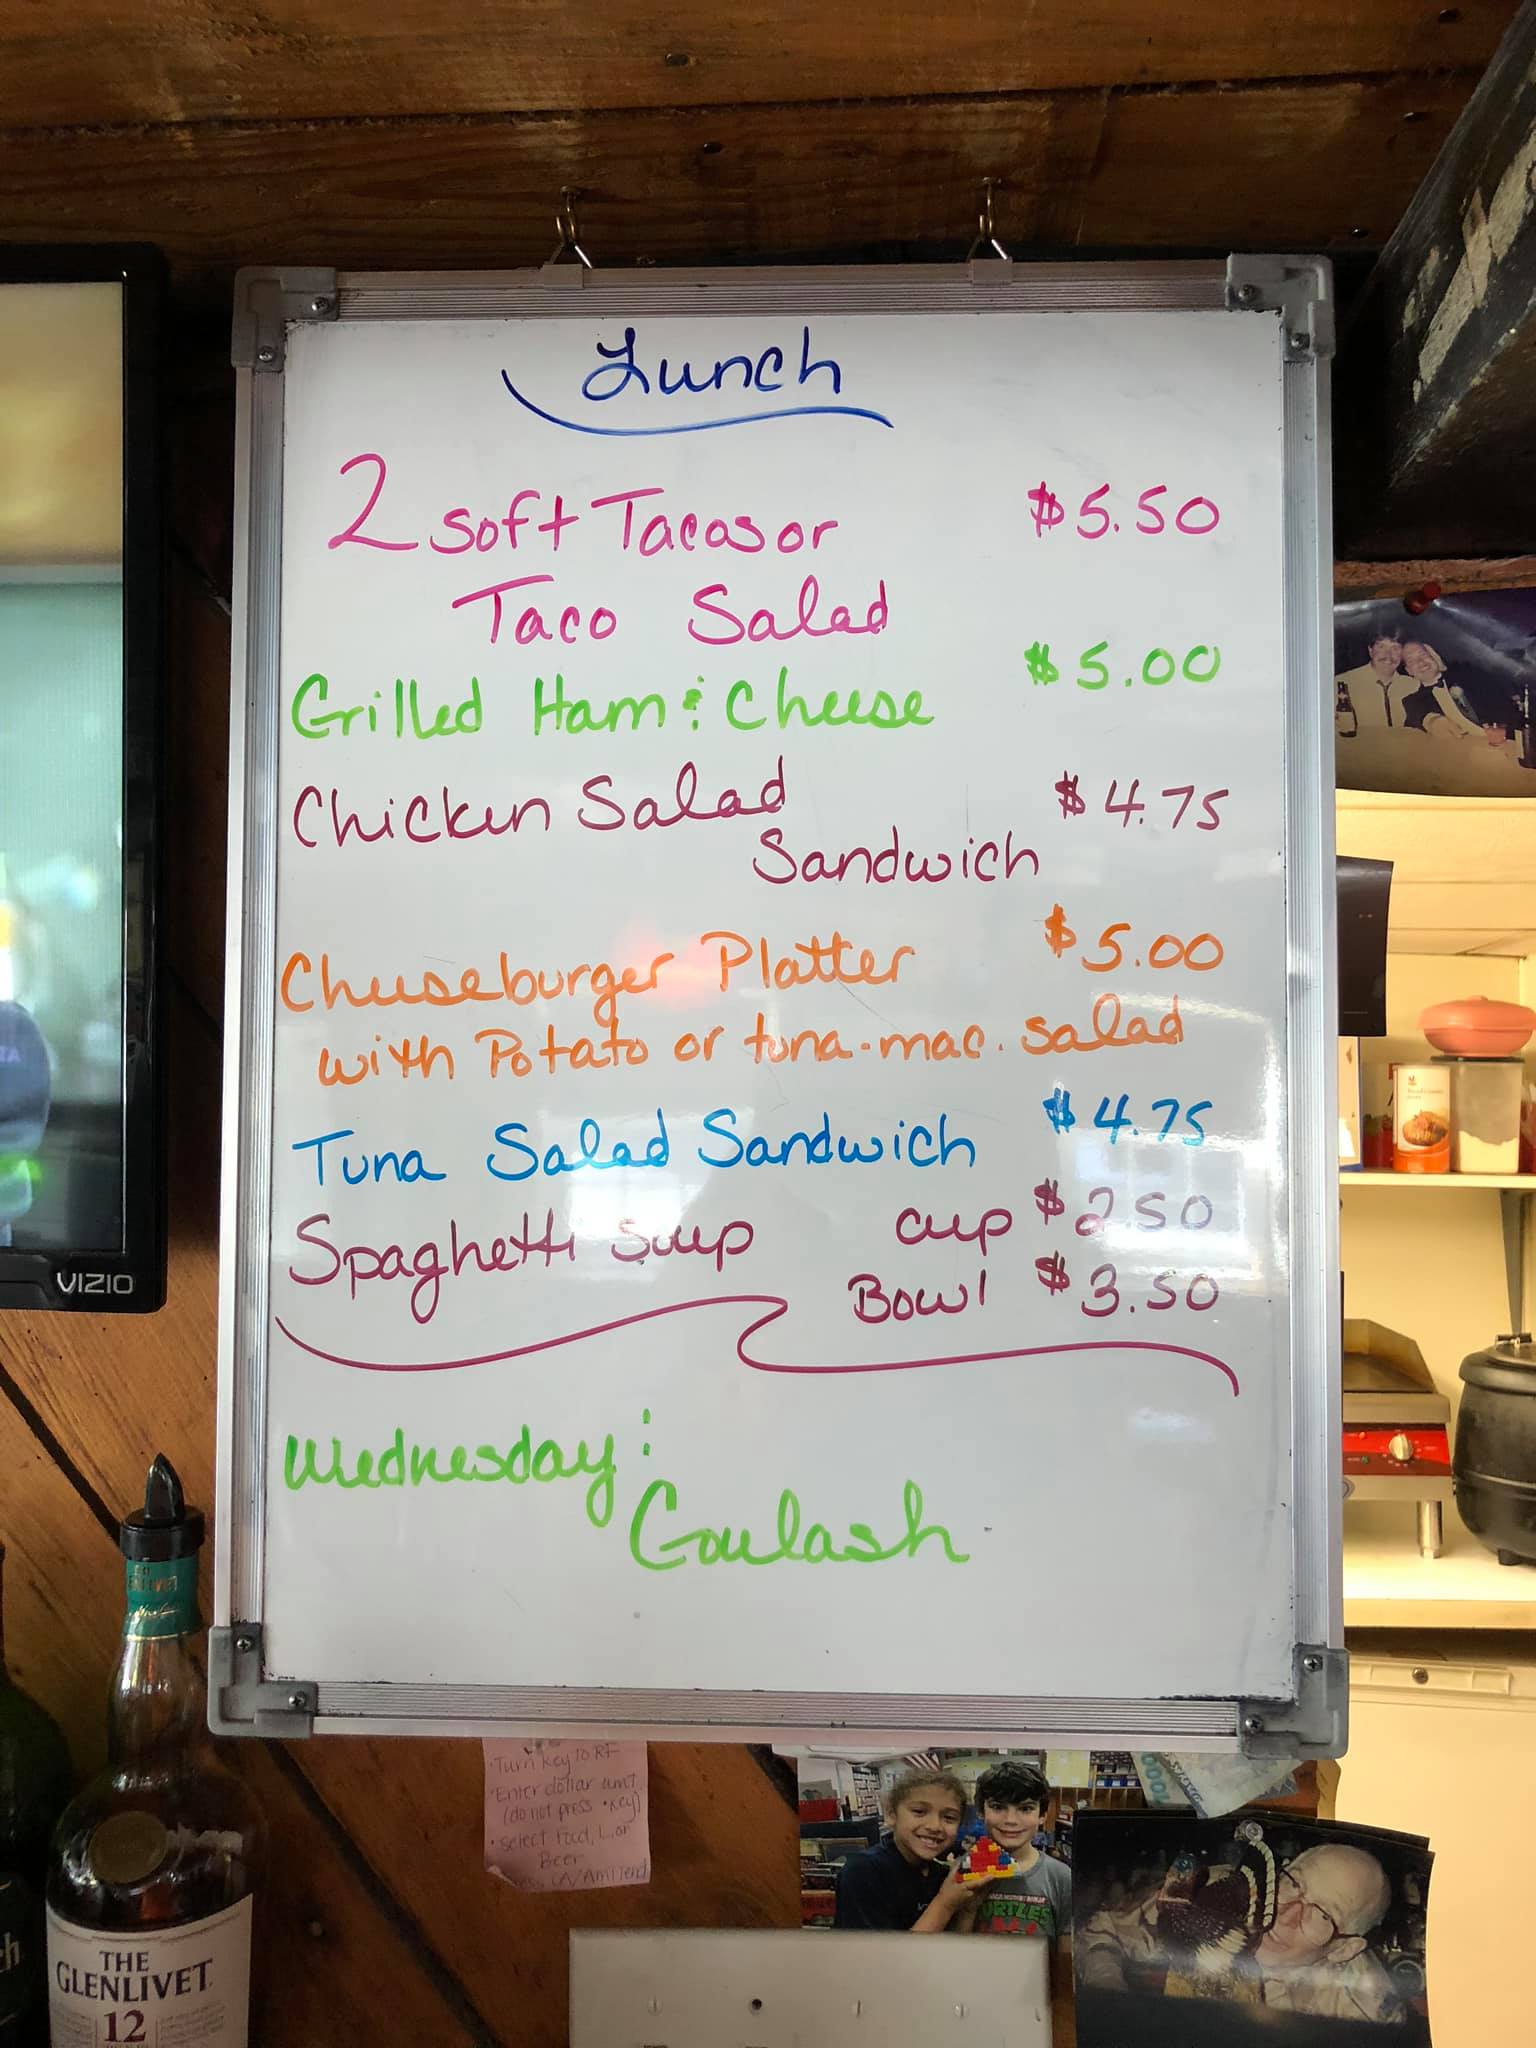 Lunch
2 soft Tacos or $5.50
Taco Salad
Grilled Ham & Cheese $5.00
Chicken Salad $4.75
Sandwich
Cheeseburger Platter $5.00
with Potato or tuna.mac. salad
Tuna Salad Sandwich $4.75
Spaghetti Soup cup $2.50
Bowl $3.50
Wednesday:
Goulash
VIZIO
THE
GLENLIVET
12
• Turn key to RF
• Enter dollar amt
(do not press • key)
• Select Food, L, or
Beer
CA/Amt Tend
TURTLES